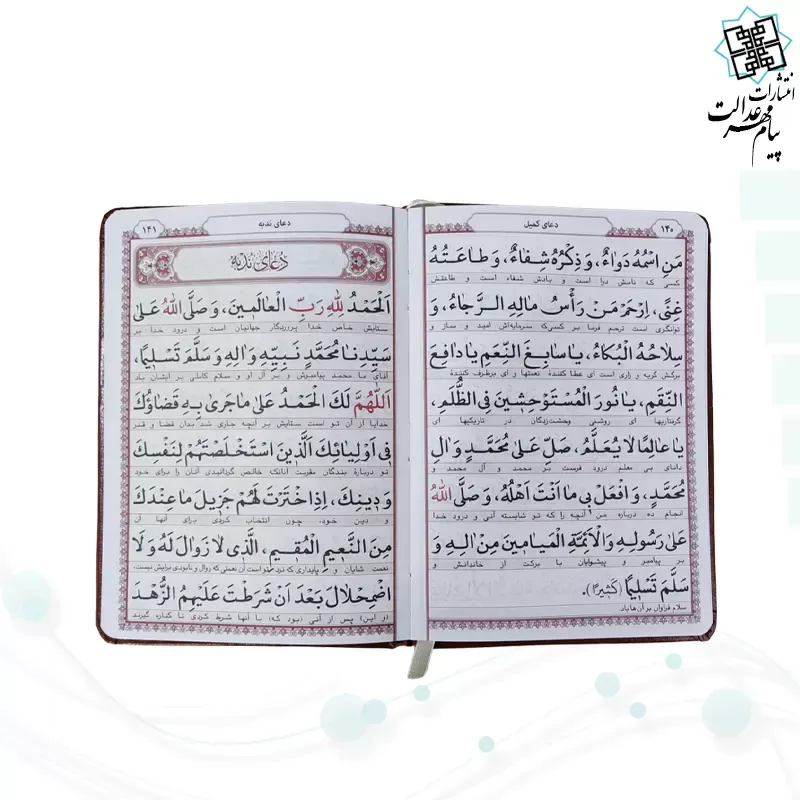 انتشارات
پیام مهر عدالت
۱۴۰
دعای کمیل
مَنِ اسْمُهُ دَوٰاءٌ، وَ ذِكْرُهُ شِفٰاءٌ، وَ طٰاعَتُهُ
کسی که نامش دوا است و یادش شفاء است و طاعتش
غِنًى، اِرْحَمْ مَنْ رَأْسُ مٰالِهِ الرَّجٰاءُ، وَ
توانگری است ترحم فرما بر کسیکه سرمایه‌اش امید و ساز و
سِلاٰحُهُ الْبُكٰاءُ، يٰا سٰابِغَ النِّعَمِ يٰا دٰافِعَ
برگش گریه و زاری است ای عطا کنندهٔ نعمتها و ای برطرف کنندهٔ
النِّقَمِ، يٰا نُورَ الْمُسْتَوْحِشِينَ فِى الظُّلَمِ،
گرفتاریها ای روشنی وحشت‌زدگان در تاریکیها ای
يٰا عٰالِمًا لاٰ يُعَلَّمُ، صَلِّ عَلىٰ مُحَمَّدٍ وَ اٰلِ
دانای بی معلم درود فرست بر محمد و آل محمد و
مُحَمَّدٍ، وَ افْعَلْ بِى مٰا اَنْتَ اَهْلُهُ، وَ صَلَّى اللهُ
انجام ده درباره من آنچه را که تو شایسته آنی و درود خدا
عَلىٰ رَسُولِهِ وَ الْاَئِمَّةِ الْمَيٰامِينَ مِنْ اٰلِهِ وَ
بر پیامبر و پیشوایان با برکت از خاندانش و
سَلَّمَ تَسْلِيمًا (كَثِيرًا).
سلام فراوان بر آن‌ها باد.
دعای ندبه
۱۴۱
دُعای نُدبه
اَلْحَمْدُ لِلّٰهِ رَبِّ الْعٰالَمِينَ، وَ صَلَّى اللهُ عَلىٰ
ستایش خاص خدا پروردگار جهانیان است و درود خدا بر
سَيِّدِنٰا مُحَمَّدٍ نَبِيِّهِ وَ اٰلِهِ وَ سَلَّمَ تَسْلِيمًا،
آقای ما محمد پیامبرش و بر آل او و سلام کاملی بر ایشان باد
اَللّٰهُمَّ لَكَ الْحَمْدُ عَلىٰ مٰا جَرىٰ بِهِ قَضٰاؤُكَ
خدایا از آن تو است ستایش بر آنچه جاری شد بدان قضا و قدر
فِى اَوْلِيٰائِكَ الَّذِينَ اسْتَخْلَصْتَهُمْ لِنَفْسِكَ
تو دربارهٔ بندگان مقربت آنانکه خالص گردانیدی آنان را برای خود
وَ دِينِكَ، اِذِ اخْتَرْتَ لَهُمْ جَزِيلَ مٰا عِنْدَكَ
و دین خود، چون انتخاب کردی برای آنها آن
مِنَ النَّعِيمِ الْمُقِيمِ، الَّذِى لاٰ زَوٰالَ لَهُ وَ لاَ
نعمت شایان و پایداری که نزد تو است آن نعمتی که زوال و نابودی برایش نیست،
اضْمِحْلاٰلَ بَعْدَ اَنْ شَرَطْتَ عَلَيْهِمُ الزُّهْدَ
(و این) پس از آنی (بود که) با آنها شرط کردی تا کناره گیرند